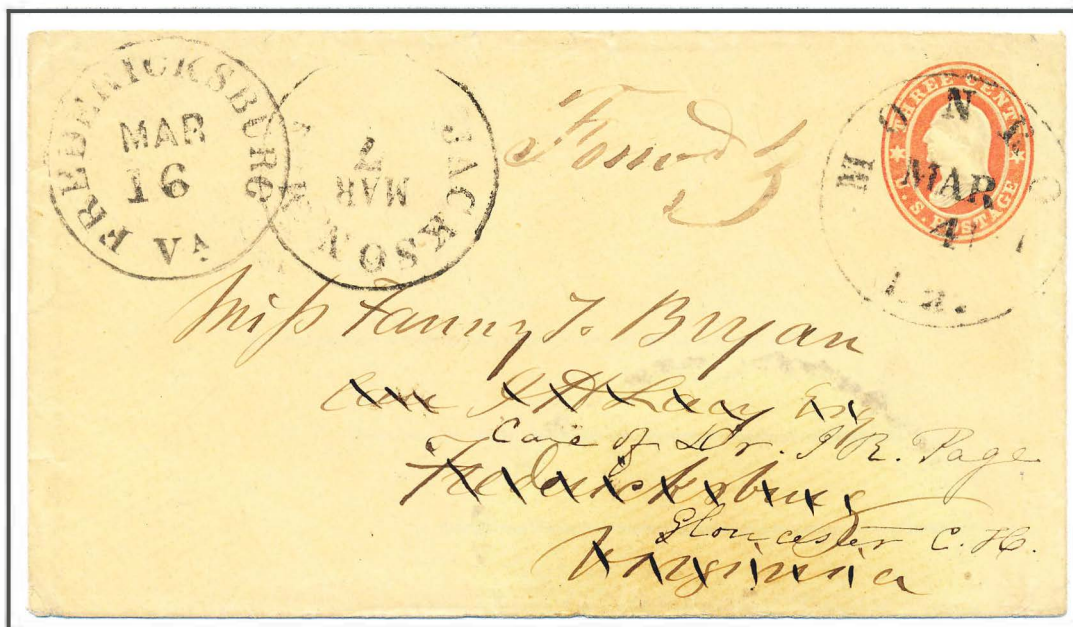 FREDERICKSBURG
MAR
16
VA
JACKSON
MAR
7
Forwd 3
THREE CENTS
U.S. POSTAGE
MONRO
MAR
4
La.
Miss Fanny T. Bryan
Care J H Lacy Esq
Care of Dr. J R. Page
Fredericksburg
Gloucester C. H.
Virginia